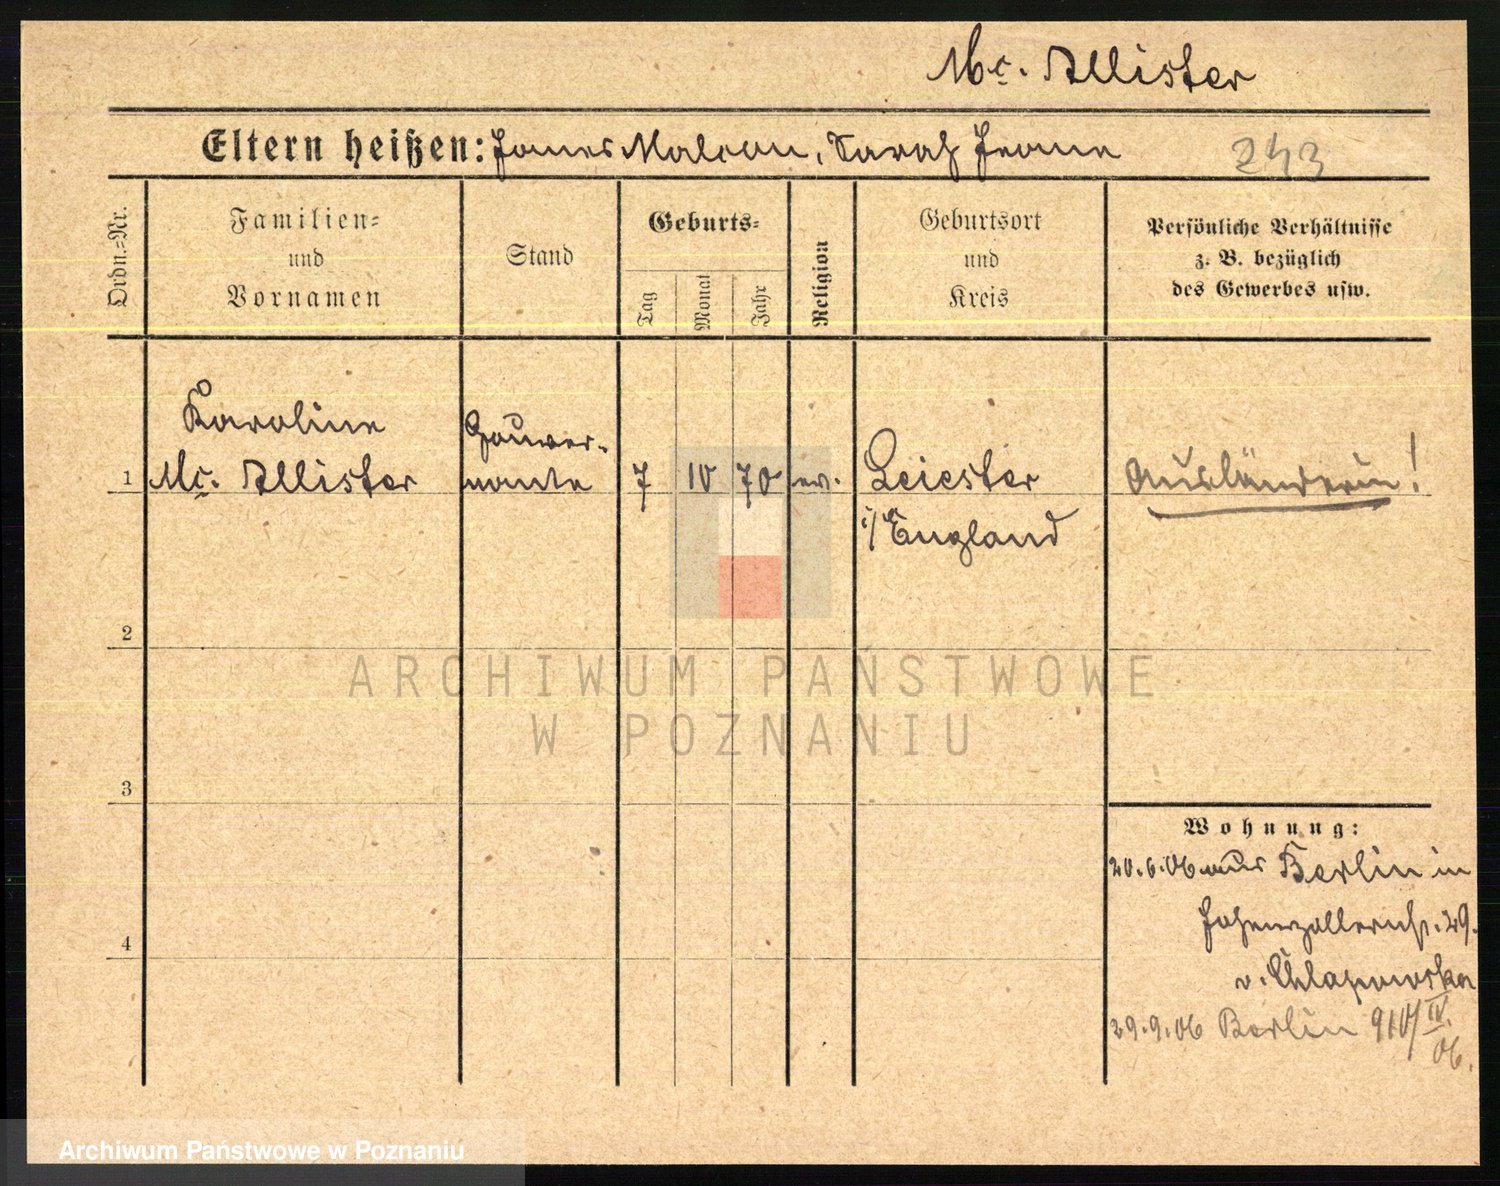 Mc. Allister
Eltern heißen: James Malcom, Sarah Jeane
243
Ordn.=Nr.
Familien=
und
Vornamen
Stand
Geburts=
Tag
Monat
Jahr
Religion
Geburtsort
und
Kreis
Persönliche Verhältnisse
z. B. bezüglich
des Gewerbes usw.
1
Karoline
Mc. Allister
Gouver-
nante
7
10
70
ev.
Leiester
i/England
Ausländerin!
2
3
4
Wohnung:
20.6.06 aus Berlin in
Hohenzollernstr. 29.
v. Chlapowska
29.9.06 Berlin 910/IV.
06.
ARCHIWUM PAŃSTWOWE
W POZNANIU
Archiwum Państwowe w Poznaniu